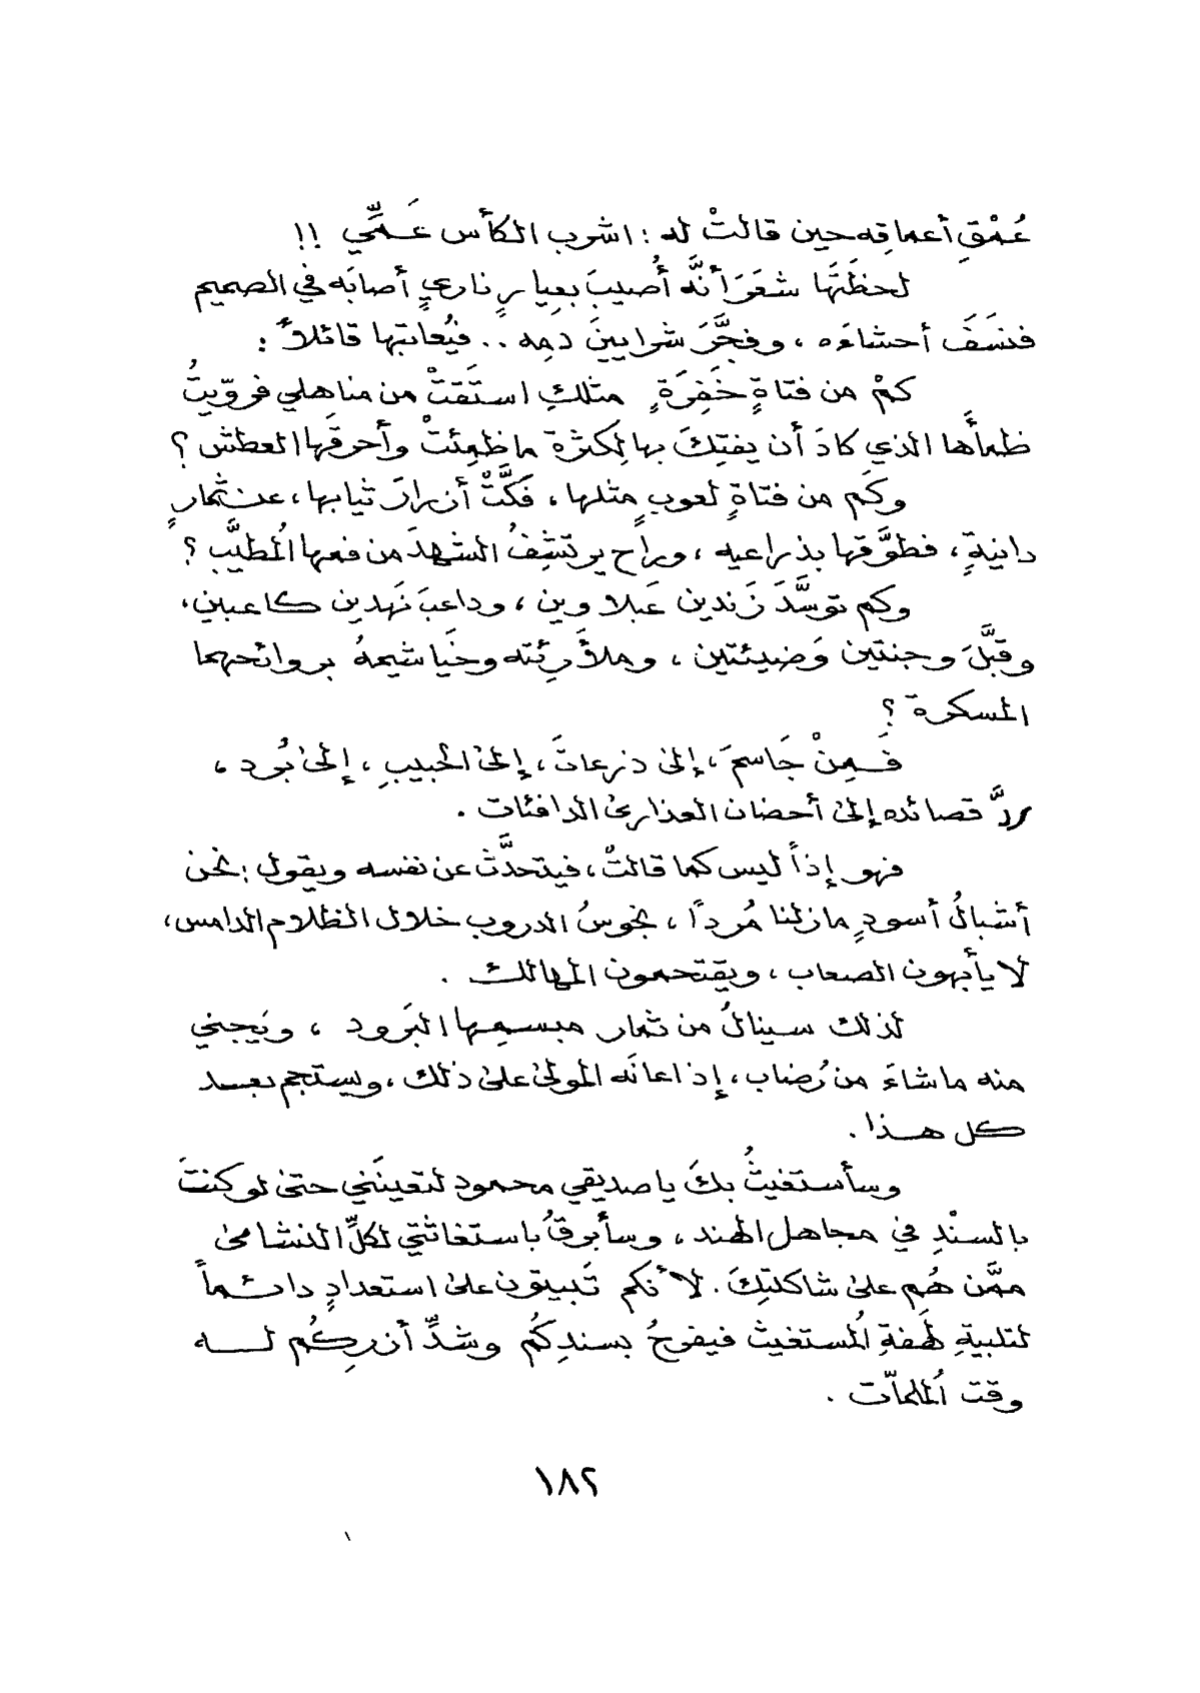 عُمْقِ أعماقِه حين قالتْ له : اشرب الكأس عَـمِّي !!
لحظتَها شعَرَ أنَّه أُصيبَ بعِيارٍ ناريٍ أصابَه في الصميم
فنسَفَ أحشاءَه ، وفجَّرَ شرايينَ دمِه .. فيُعاتبها قائلاً :
كمْ من فتاةٍ خَفِرَةٍ مثلكِ استَقتْ من مناهلي فروّيتُ
ظمأَها الذي كادَ أن يفتِكَ بها لِكثرة ما ظمِئتْ وأحرقَها العطش ؟
وكَم من فتاةٍ لعوبٍ مثلها ، فَكَّتْ أزرارَ ثيابها ، عن ثمارٍ
دانيةٍ ، فطوَّقها بذراعيه ، وراح يرتشِفُ الشهدَ من فمها المُطيَّب ؟
وكم توسَّدَ زَندين عَبلاوين ، وداعبَ نَهدين كاعبين ،
وقبَّلَ وجنتين وَضيئتين ، وملأَ رِئته وخَياشيمهُ بروائحهما
المسكرة ؟
فَـمِنْ جَاسمَ ، إلى دزعاتَ ، إلى الحبيبِ ، إلى بُرد ،
ردَّ قصائده إلى أحضان العذارى الدافئات .
فهو إذاً ليس كما قالتْ ، فيتحدَّث عن نفسه ويقول : نحن
أشبالُ أسودٍ مازلنا مُرداً ، نجوسُ الدروب خلال الظلام الدامس ،
لا يأبهون الصعاب ، ويقتحمون المهالك .
لذلك سينالُ من ثمار مبسمِها البَرود ، ويَجني
منه ماشاءَ من رُضاب ، إذ اعانَه المولى على ذلك ، ويستجم بعـد
كل هـذا .
وسأستغيثُ بكَ يا صديقي محمود لتعينَني حتى لو كنتَ
بالسنْدِ في مجاهل الهند ، وسأبرقُ باستغاثتي لكلِّ النشامى
ممَّن هُم على شاكلتِكَ . لأنكم تَبيتون على استعدادٍ دائـماً
لتلبيةِ لهفةِ المُستغيث فيفرحُ بسندِكُم وشدِّ أزرِكُم لـــه
وقت المُلمّات .
١٨٢